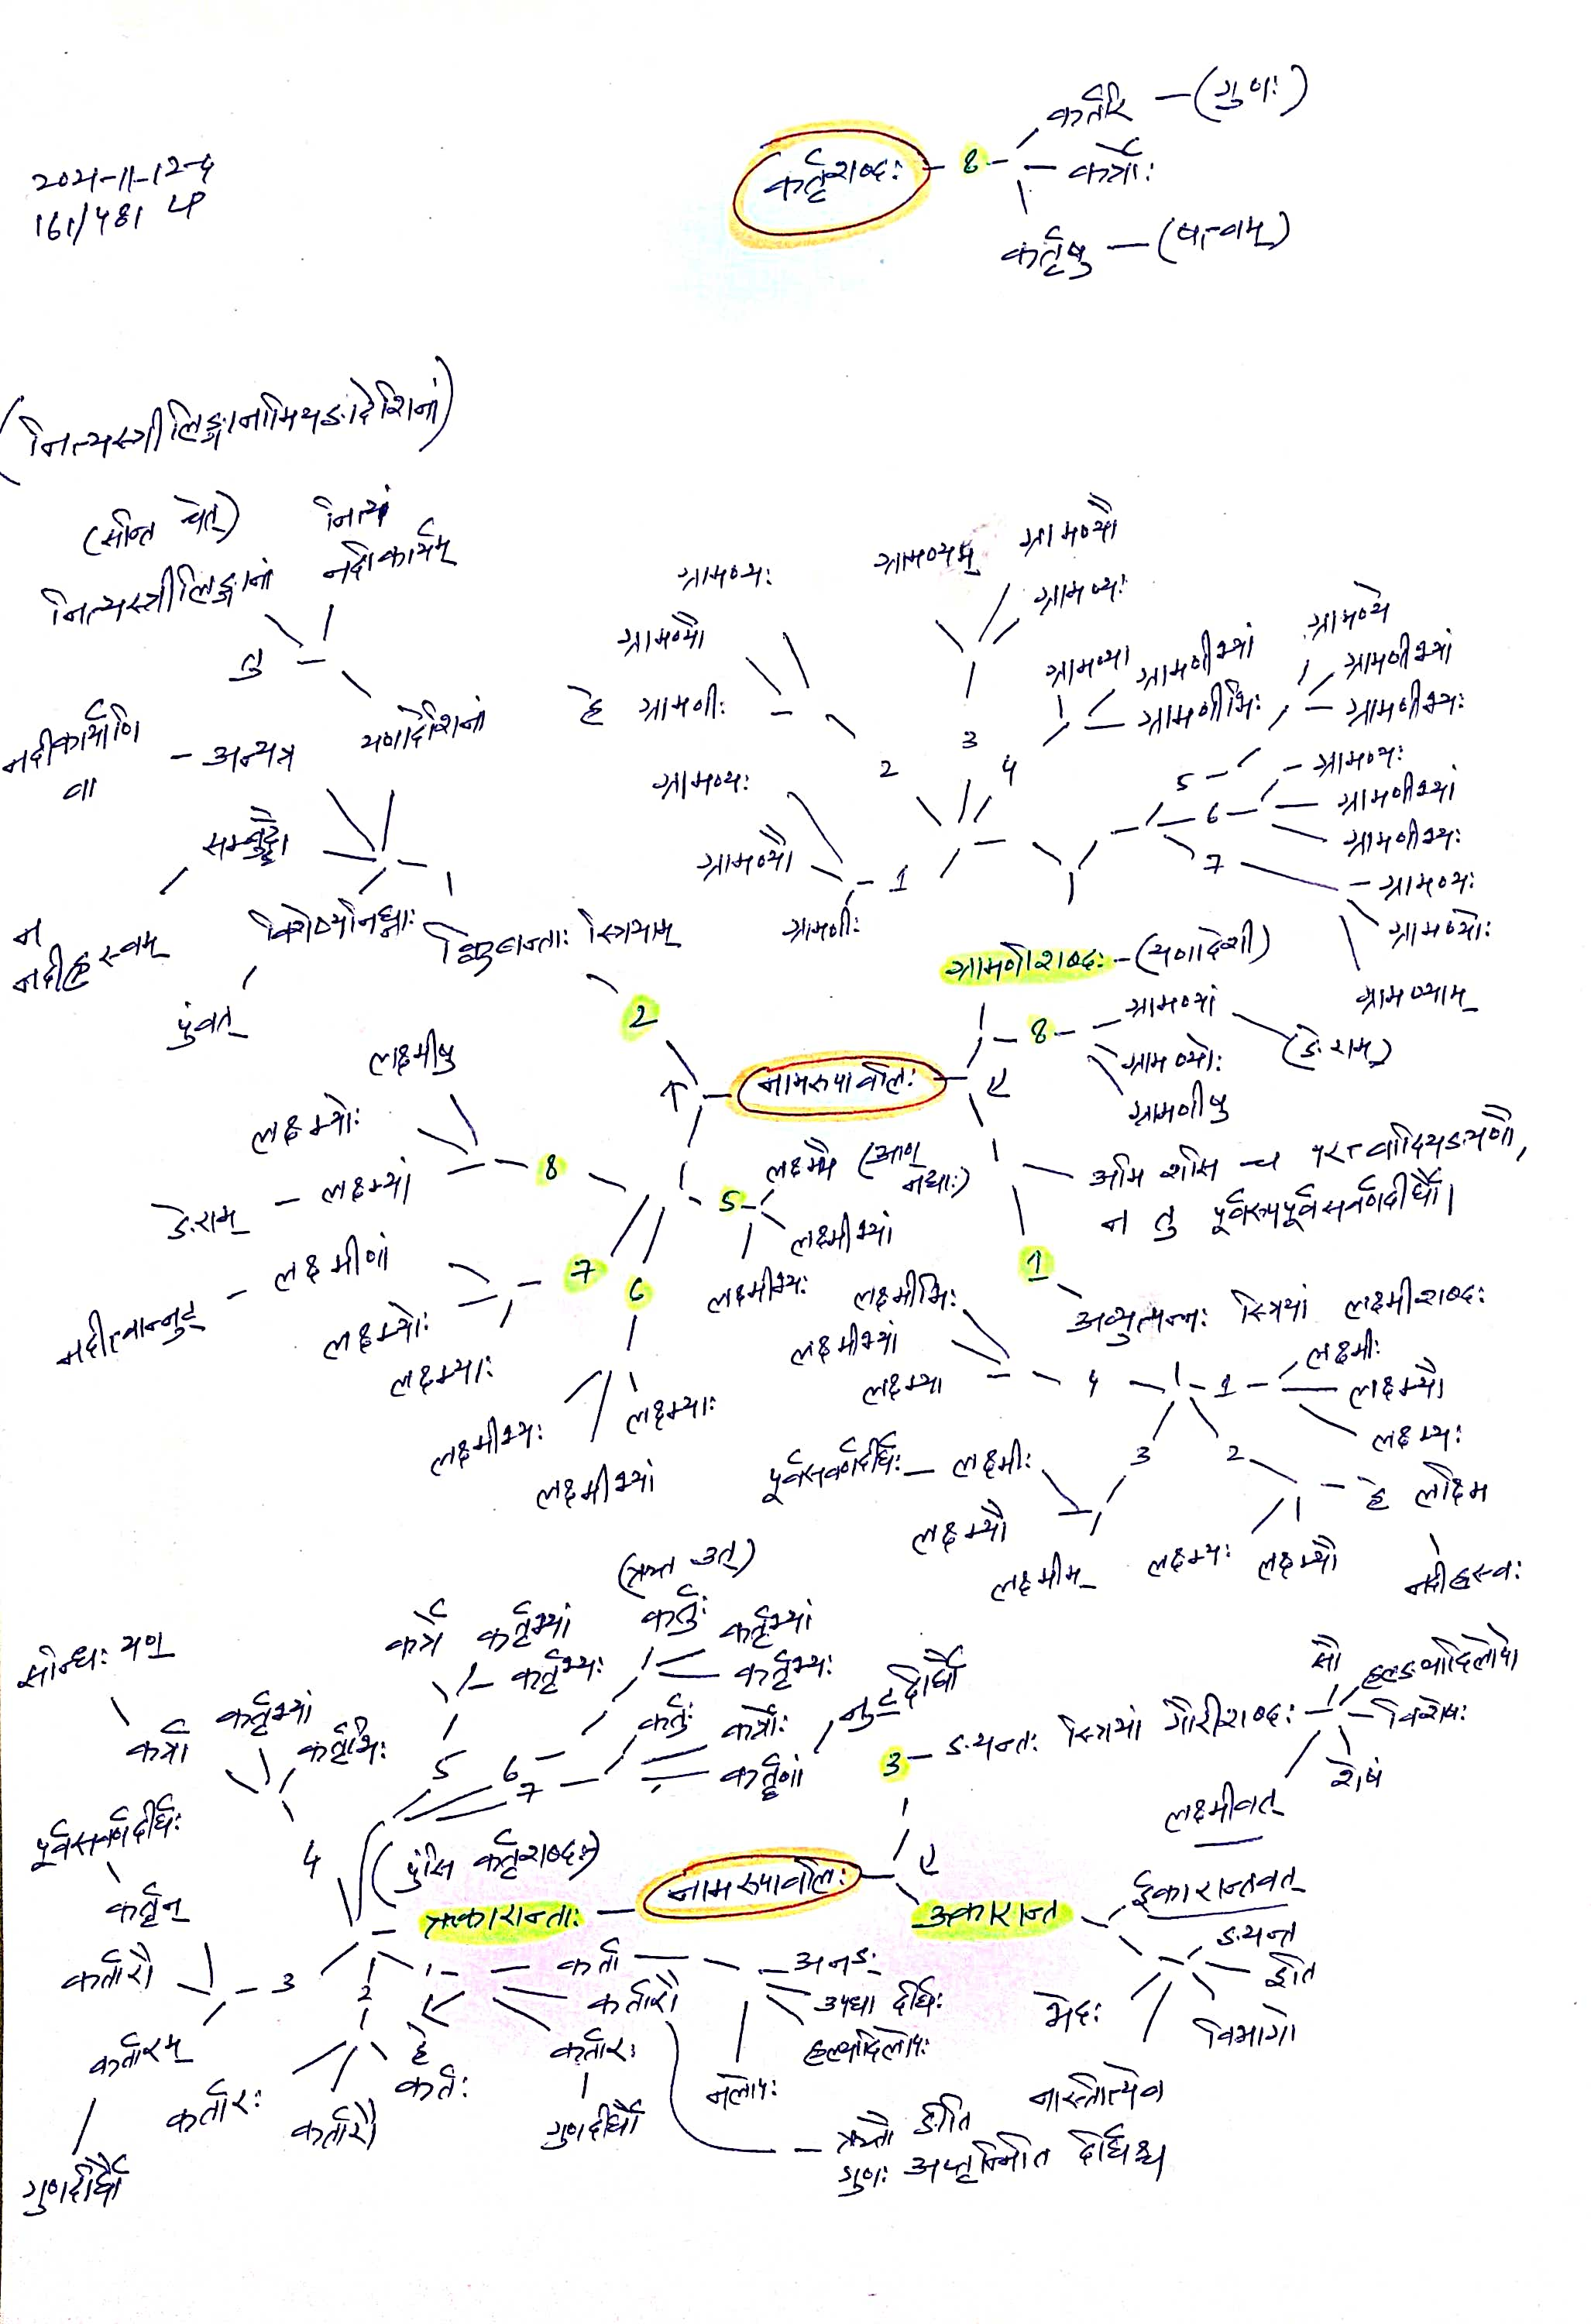 कर्तरि - (गुणः)
कर्तृशब्दः - 8 - कर्त्रोः
कर्तृषु - (षत्वम्)
2021-11-12-4
161/481
(नित्यस्त्रीलिङ्गानामियङादेशिनां)
(सन्ति चेत्)
नित्यं
नदीकार्यम्
नित्यस्त्रीलिङ्गानां
तु
यणादेशिनां
नदीकार्याणि
वा
- अन्यत्र
सम्बुद्धौ
न
नदीह्रस्वम्
पुंवत्
क्विबन्ताः स्त्रियाम्
2
ग्रामण्यः
ग्रामण्यौ
हे ग्रामणीः
2
ग्रामण्यम्
ग्रामण्यौ
ग्रामण्यः
3
ग्रामण्या
ग्रामणीभ्यां
ग्रामणीभिः
4
ग्रामण्ये
ग्रामणीभ्यां
ग्रामणीभ्यः
5
ग्रामण्यः
ग्रामणीभ्यां
ग्रामणीभ्यः
6
ग्रामण्यः
ग्रामण्योः
ग्रामण्याम्
7
ग्रामण्यः
ग्रामण्यौ
ग्रामणीः
1
ग्रामणीशब्दः - (यणादेशी)
8 - ग्रामण्यां
(ङेः राम्)
ग्रामण्योः
ग्रामणीषु
नामरूपावलिः
अमि शसि च परत्वादियङ्यणौ,
न तु पूर्वरूपपूर्वसवर्णदीर्घौ।
1
अव्युत्पन्नः स्त्रियां लक्ष्मीशब्दः
लक्ष्मीषु
लक्ष्म्योः
ङेःराम् - लक्ष्म्यां
8
लक्ष्मीणां
नदीत्वान्नुट्
लक्ष्म्योः
लक्ष्म्याः
7
लक्ष्म्यै (आण्
नद्याः)
5
लक्ष्मीभ्यां
लक्ष्मीभ्यः
6
लक्ष्म्याः
लक्ष्मीभ्यः
लक्ष्मीभ्यां
लक्ष्मीभिः
लक्ष्मीभ्यां
लक्ष्म्या
4
1
लक्ष्मीः
लक्ष्म्यौ
लक्ष्म्यः
2
हे लक्ष्मि
नदीह्रस्वः
लक्ष्म्यौ
लक्ष्म्यः
3
पूर्वसवर्णदीर्घः - लक्ष्मीः
लक्ष्म्यौ
लक्ष्मीम्
(ऋत उत्)
कर्त्रे
कर्तृभ्यां
कर्तृभ्यः
5
कर्तुः
कर्तृभ्यां
कर्तृभ्यः
6
कर्तुः
कर्त्रोः
कर्तॄणां
7
नुट्दीर्घौ
सन्धिः यण्
कर्त्रा
कर्तृभ्यां
कर्तृभिः
4
3 - ङ्यन्तः स्त्रियां गौरीशब्दः
सौ
हल्ङ्यादिलोपो
विशेषः
शेषं
लक्ष्मीवत्
पूर्वसवर्णदीर्घः
कर्तॄन्
कर्तारौ
3
कर्तारम्
गुणदीर्घौ
(पुंसि कर्तृशब्दः)
ऋकारान्ताः
नामरूपावलिः
उकारान्त
ईकारान्तवत्
ङ्यन्त
इति
विभागो
नास्तीत्येव
भेदः
कर्ता
अनङ्
उपधा दीर्घः
हल्यादिलोपः
नलोपः
कर्तारौ
कर्तारः
गुणदीर्घौ
2
हे
कर्तः
कर्तारौ
कर्तारः
ऋतो ङीति
गुणः अप्तृन्निति दीर्घश्च